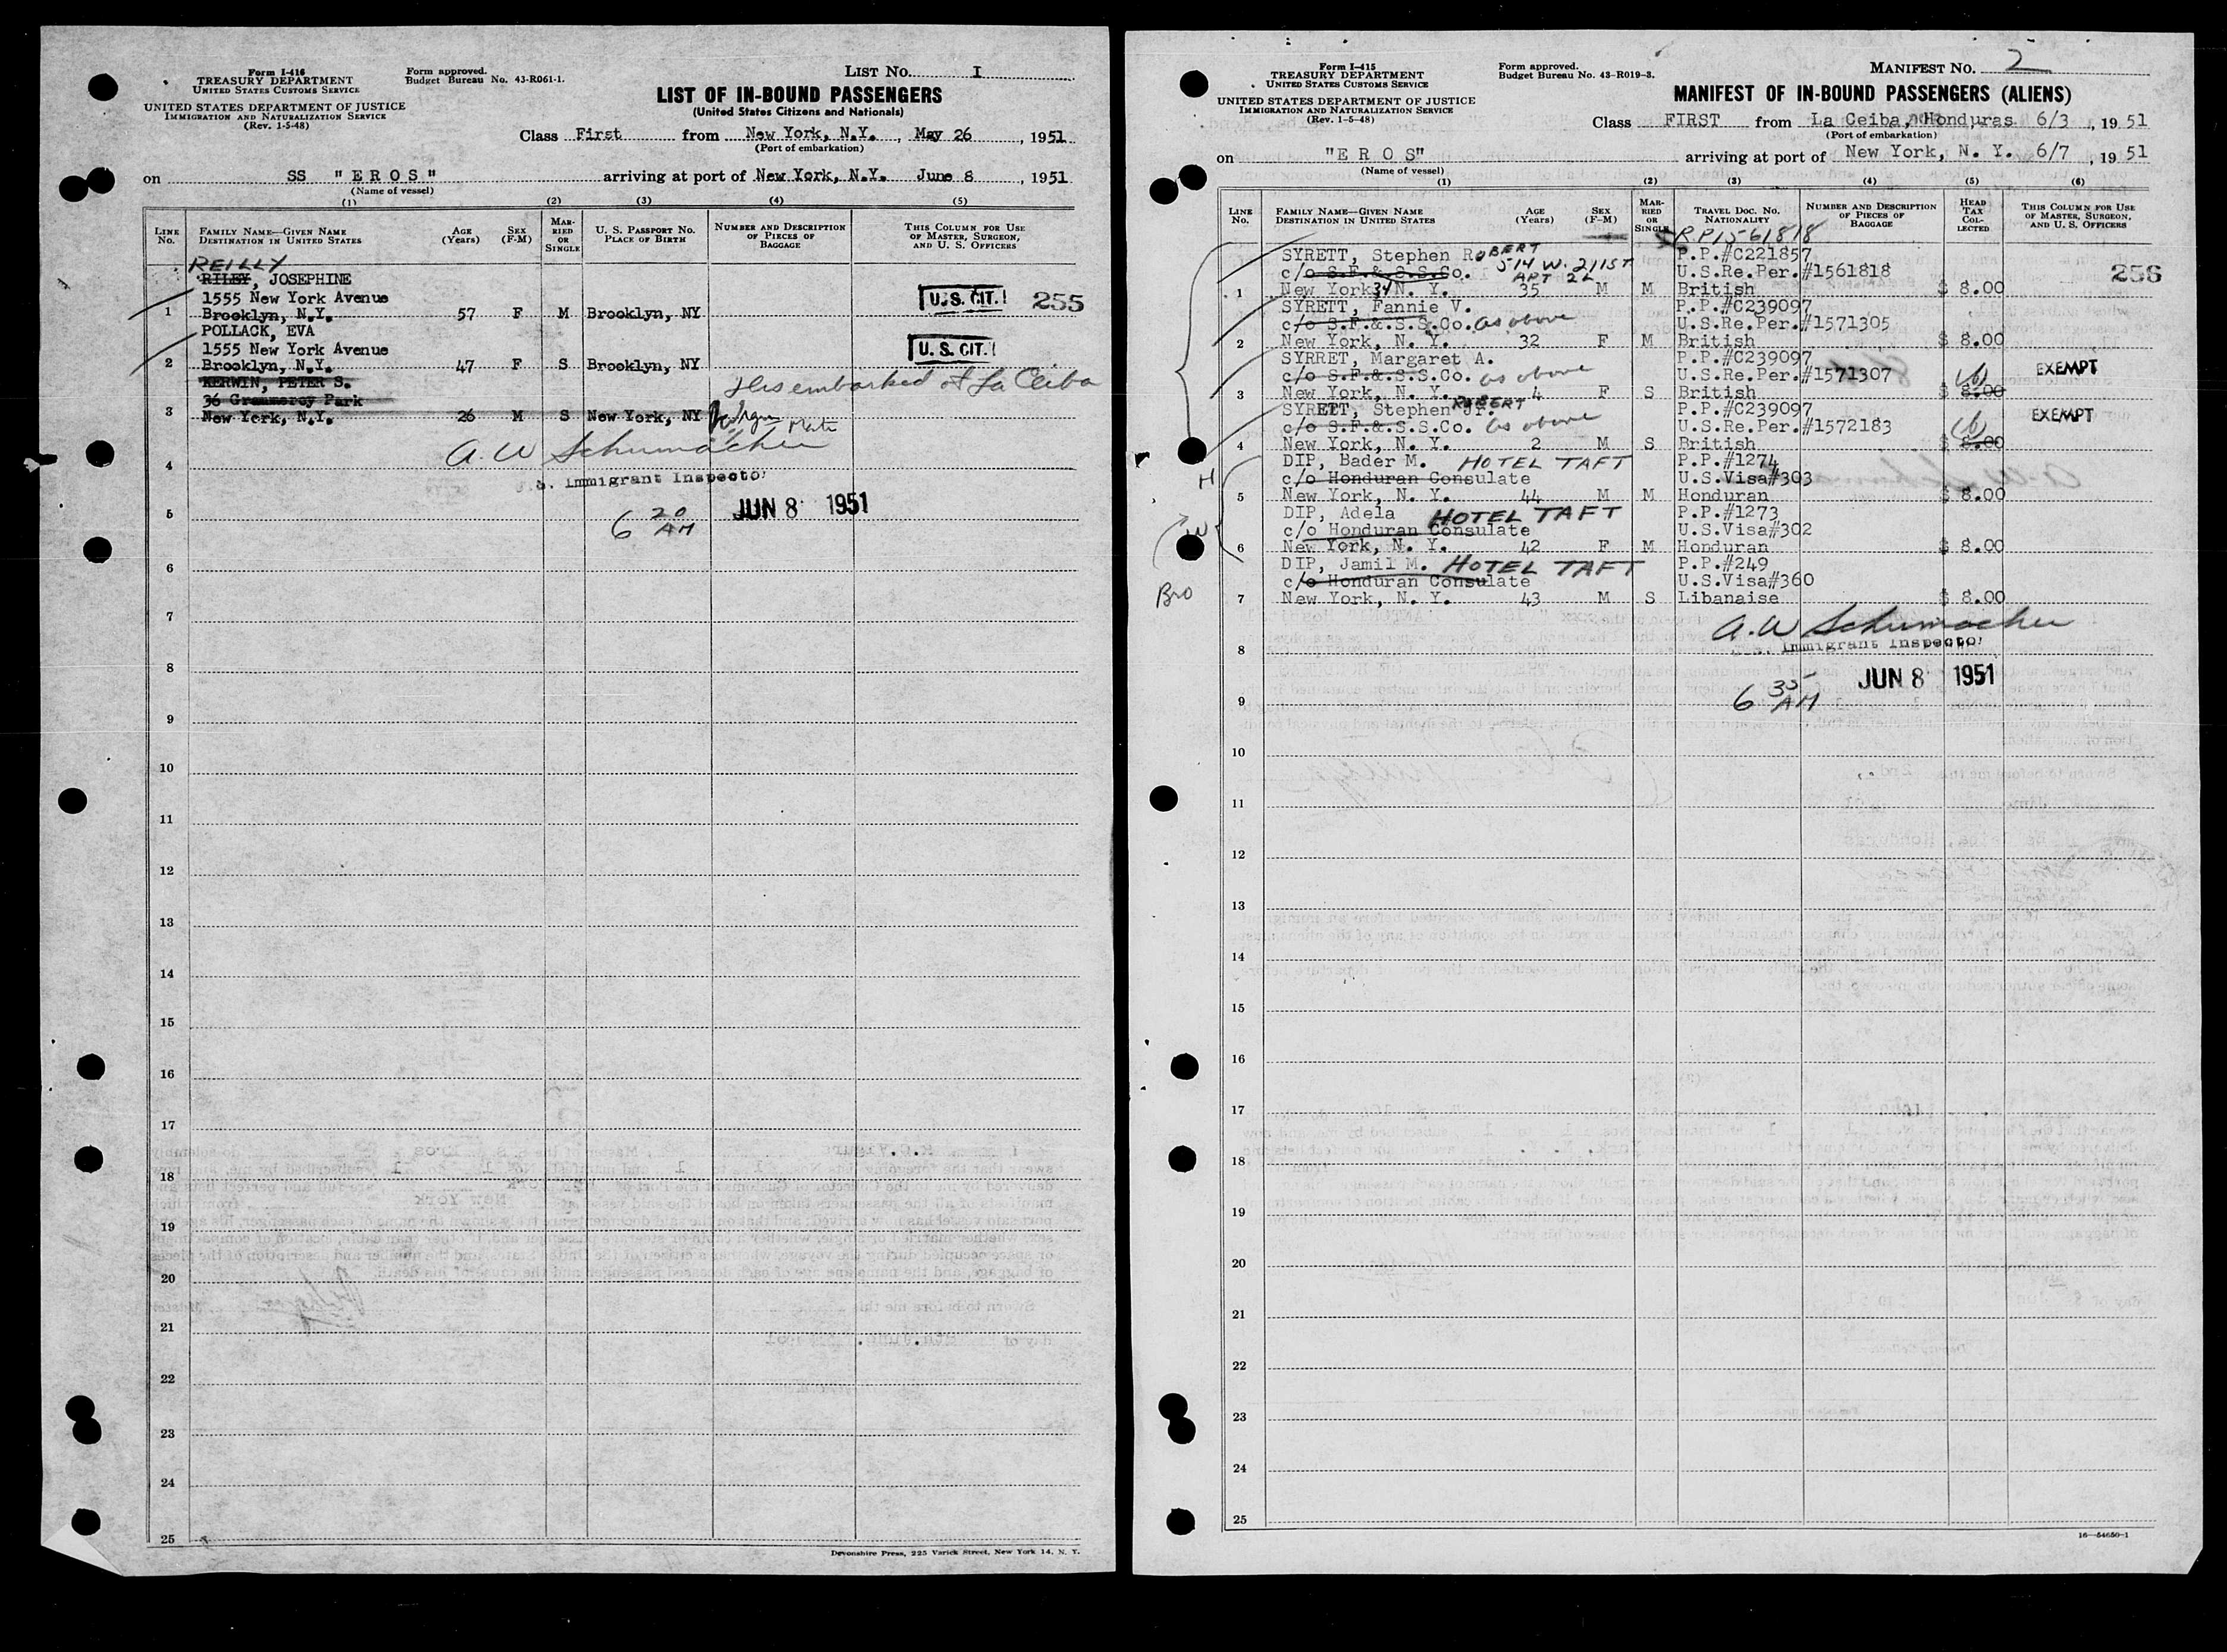 Form I-416
TREASURY DEPARTMENT
UNITED STATES CUSTOMS SERVICE
UNITED STATES DEPARTMENT OF JUSTICE
IMMIGRATION AND NATURALIZATION SERVICE
(Rev. 1-5-48)
Form approved.
Budget Bureau No. 43-R061-1.
LIST No. I
LIST OF IN-BOUND PASSENGERS
(United States Citizens and Nationals)
Class First from New York, N.Y., May 26, 1951
(Port of embarkation)
on SS "EROS" arriving at port of New York, N.Y. June 8, 1951
(Name of vessel)
(1) (2) (3) (4) (5)
LINE No. FAMILY NAME—GIVEN NAME DESTINATION IN UNITED STATES AGE (Years) SEX (F-M) MARRIED OR SINGLE U. S. PASSPORT No. PLACE OF BIRTH NUMBER AND DESCRIPTION OF PIECES OF BAGGAGE THIS COLUMN FOR USE OF MASTER, SURGEON, AND U. S. OFFICERS
REILLY
RILEY, JOSEPHINE
1555 New York Avenue U.S. CIT. 255
1 Brooklyn, N.Y. 57 F M Brooklyn, NY
POLLACK, EVA
1555 New York Avenue U.S. CIT.
2 Brooklyn, N.Y. 47 F S Brooklyn, NY
KERWIN, PETER S. Disembarked at La Ceiba
36 Grammercy Park
3 New York, N.Y. 26 M S New York, NY
A. W Schumacher
4
U.S. Immigrant Inspector
JUN 8 1951
5
6 20 AM
6
7
8
9
10
11
12
13
14
15
16
17
18
19
20
21
22
23
24
25
Devonshire Press, 225 Varick Street, New York 14, N. Y.
Form I-415
TREASURY DEPARTMENT
UNITED STATES CUSTOMS SERVICE
UNITED STATES DEPARTMENT OF JUSTICE
IMMIGRATION AND NATURALIZATION SERVICE
(Rev. 1-5-48)
Form approved.
Budget Bureau No. 43-R019-3.
MANIFEST No. 2
MANIFEST OF IN-BOUND PASSENGERS (ALIENS)
Class FIRST from La Ceiba, Honduras 6/3, 1951
(Port of embarkation)
on "EROS" arriving at port of New York, N. Y. 6/7, 1951
(Name of vessel)
(1) (2) (3) (4) (5) (6)
LINE No. FAMILY NAME—GIVEN NAME DESTINATION IN UNITED STATES AGE (Years) SEX (F-M) MARRIED OR SINGLE TRAVEL DOC. No. NATIONALITY NUMBER AND DESCRIPTION OF PIECES OF BAGGAGE HEAD TAX COLLECTED THIS COLUMN FOR USE OF MASTER, SURGEON, AND U. S. OFFICERS
RP1561818
SYRETT, Stephen ROBERT P.P.#C221857
c/o S.F.& S.S.Co. 514 W. 211ST APT 2L U.S.Re.Per.#1561818 256
1 New York 34 N. Y. 35 M M British $ 8.00
SYRETT, Fannie V. P.P.#C239097
c/o S.F.&.S.S.Co. as above U.S.Re.Per.#1571305
2 New York, N. Y. 32 F M British $ 8.00
SYRRET, Margaret A. P.P.#C239097
c/o S.F.&.S.S.Co. as above U.S.Re.Per.#1571307 EXEMPT
3 New York, N. Y. 4 F S British $ 8.00
SYRETT, Stephen Jr. ROBERT P.P.#C239097 EXEMPT
c/o S.F.&.S.S.Co. as above U.S.Re.Per.#1572183
4 New York, N. Y. 2 M S British $ 8.00
DIP, Bader M. HOTEL TAFT P.P.#1274
H c/o Honduran Consulate U.S.Visa#303
5 New York, N. Y. 44 M M Honduran $ 8.00
DIP, Adela HOTEL TAFT P.P.#1273
W c/o Honduran Consulate U.S.Visa#302
6 New York, N. Y. 42 F M Honduran $ 8.00
DIP, Jamil M. HOTEL TAFT P.P.#249
Bro c/o Honduran Consulate U.S.Visa#360
7 New York, N. Y. 43 M S Libanaise $ 8.00
A. W Schumacher
8
Immigrant Inspector
JUN 8 1951
6 35 AM
9
10
11
12
13
14
15
16
17
18
19
20
21
22
23
24
25
16—54650-1